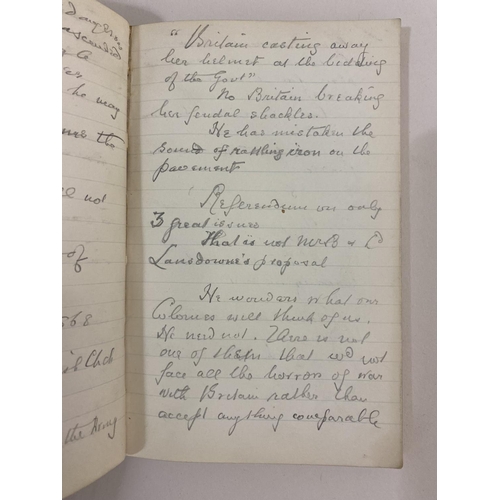 dangerous
ascended
he may
the
not
of
568
Club
the Army
"Britain casting away
her helmet at the bidding
of the Govt"
No Britain breaking
her feudal shackles.
He has mistaken the
sound of rattling iron on the
pavement
Referendum on only
3 great issues
That is not Mr B & Ld
Lansdowne's proposal
He wonders what our
Colonies will think of us.
He need not. There is not
one of them that wd not
face all the horrors of war
with Britain rather than
accept anything comparable